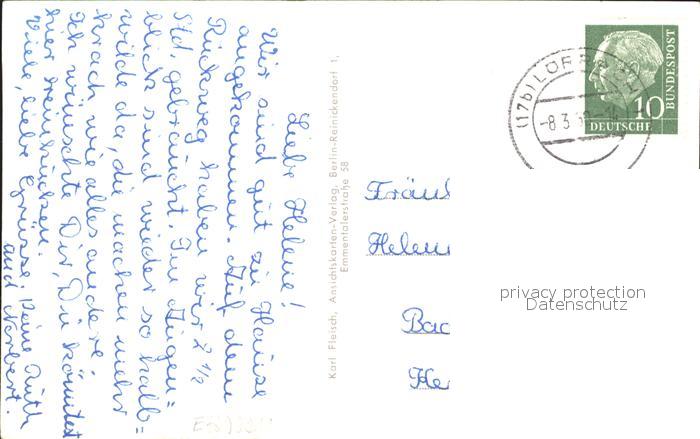 Liebe Helene!
Wir sind gut zu Hause
angekommen. Auf dem
Rückweg haben wir 2 1/2
Std. gebraucht. Im Augen=
blick sind wieder so halb=
wilde da, die machen mehr
krach wie alles andere.
Ich wünschte Dir, Du könntest
hier reinkucken.
Viele, liebe Grüsse. Deine Ruth
und Norbert.
Karl Fleisch, Ansichtskarten-Verlag, Berlin-Reinickendorf 1,
Emmentalerstraße 58
(17b) LÖRRACH
-8 3
10
DEUTSCHE
BUNDESPOST
Fräul
Helene
Bac
He
privacy protection
Datenschutz